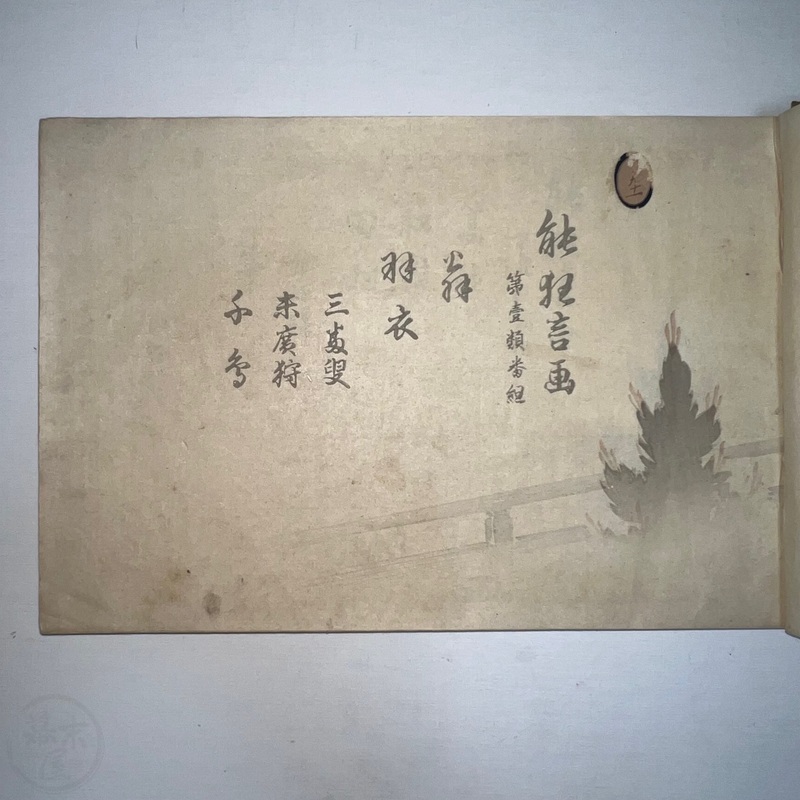 能狂言画
第壹類番組
翁
羽衣
三番叟
末廣狩
千鳥